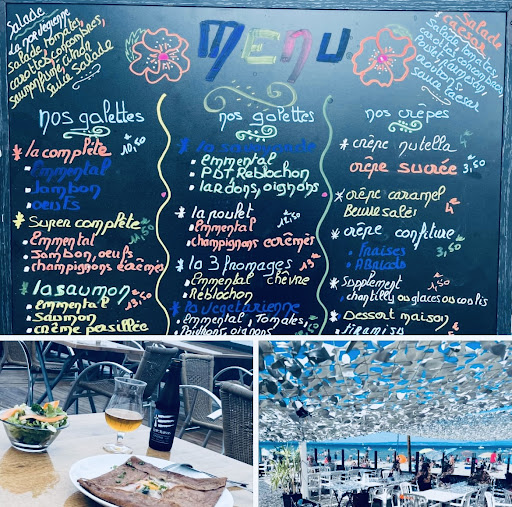 Salade
La norvégienne
Salade, tomates,
carottes, concombres,
saumon fumé, citron
sauce salade
MENU
Salade
Caesar
Salade, tomates,
carottes, concombres,
Poulet, parmesan,
croûtons,
sauce caesar
nos galettes
* la complète 10,50
• Emmental
• Jambon
• oeufs
* Super complète 11,50
• Emmental
• Jambon, oeufs
• champignons & crèmes
* la saumon 13,50
• emmental
• Saumon
• crème persillée
nos galettes
* la savoyarde
• emmental
• PDT, Reblochon
• lardons, oignons
* la poulet 11,50
• Emmental
• champignons & crèmes
* la 3 fromages
• Emmental, chèvre
• Reblochon
* la vegetarienne
• Emmental, Tomates,
oignons
nos crêpes
* crêpe nutella 4
crêpe sucrée 3,50
* crêpe caramel
Beurre salé 4
* crêpe confiture
• Fraises
• Abricots
* Supplement 1,50
chantilly ou glaces ou
* Dessert maison
• Tiramisu